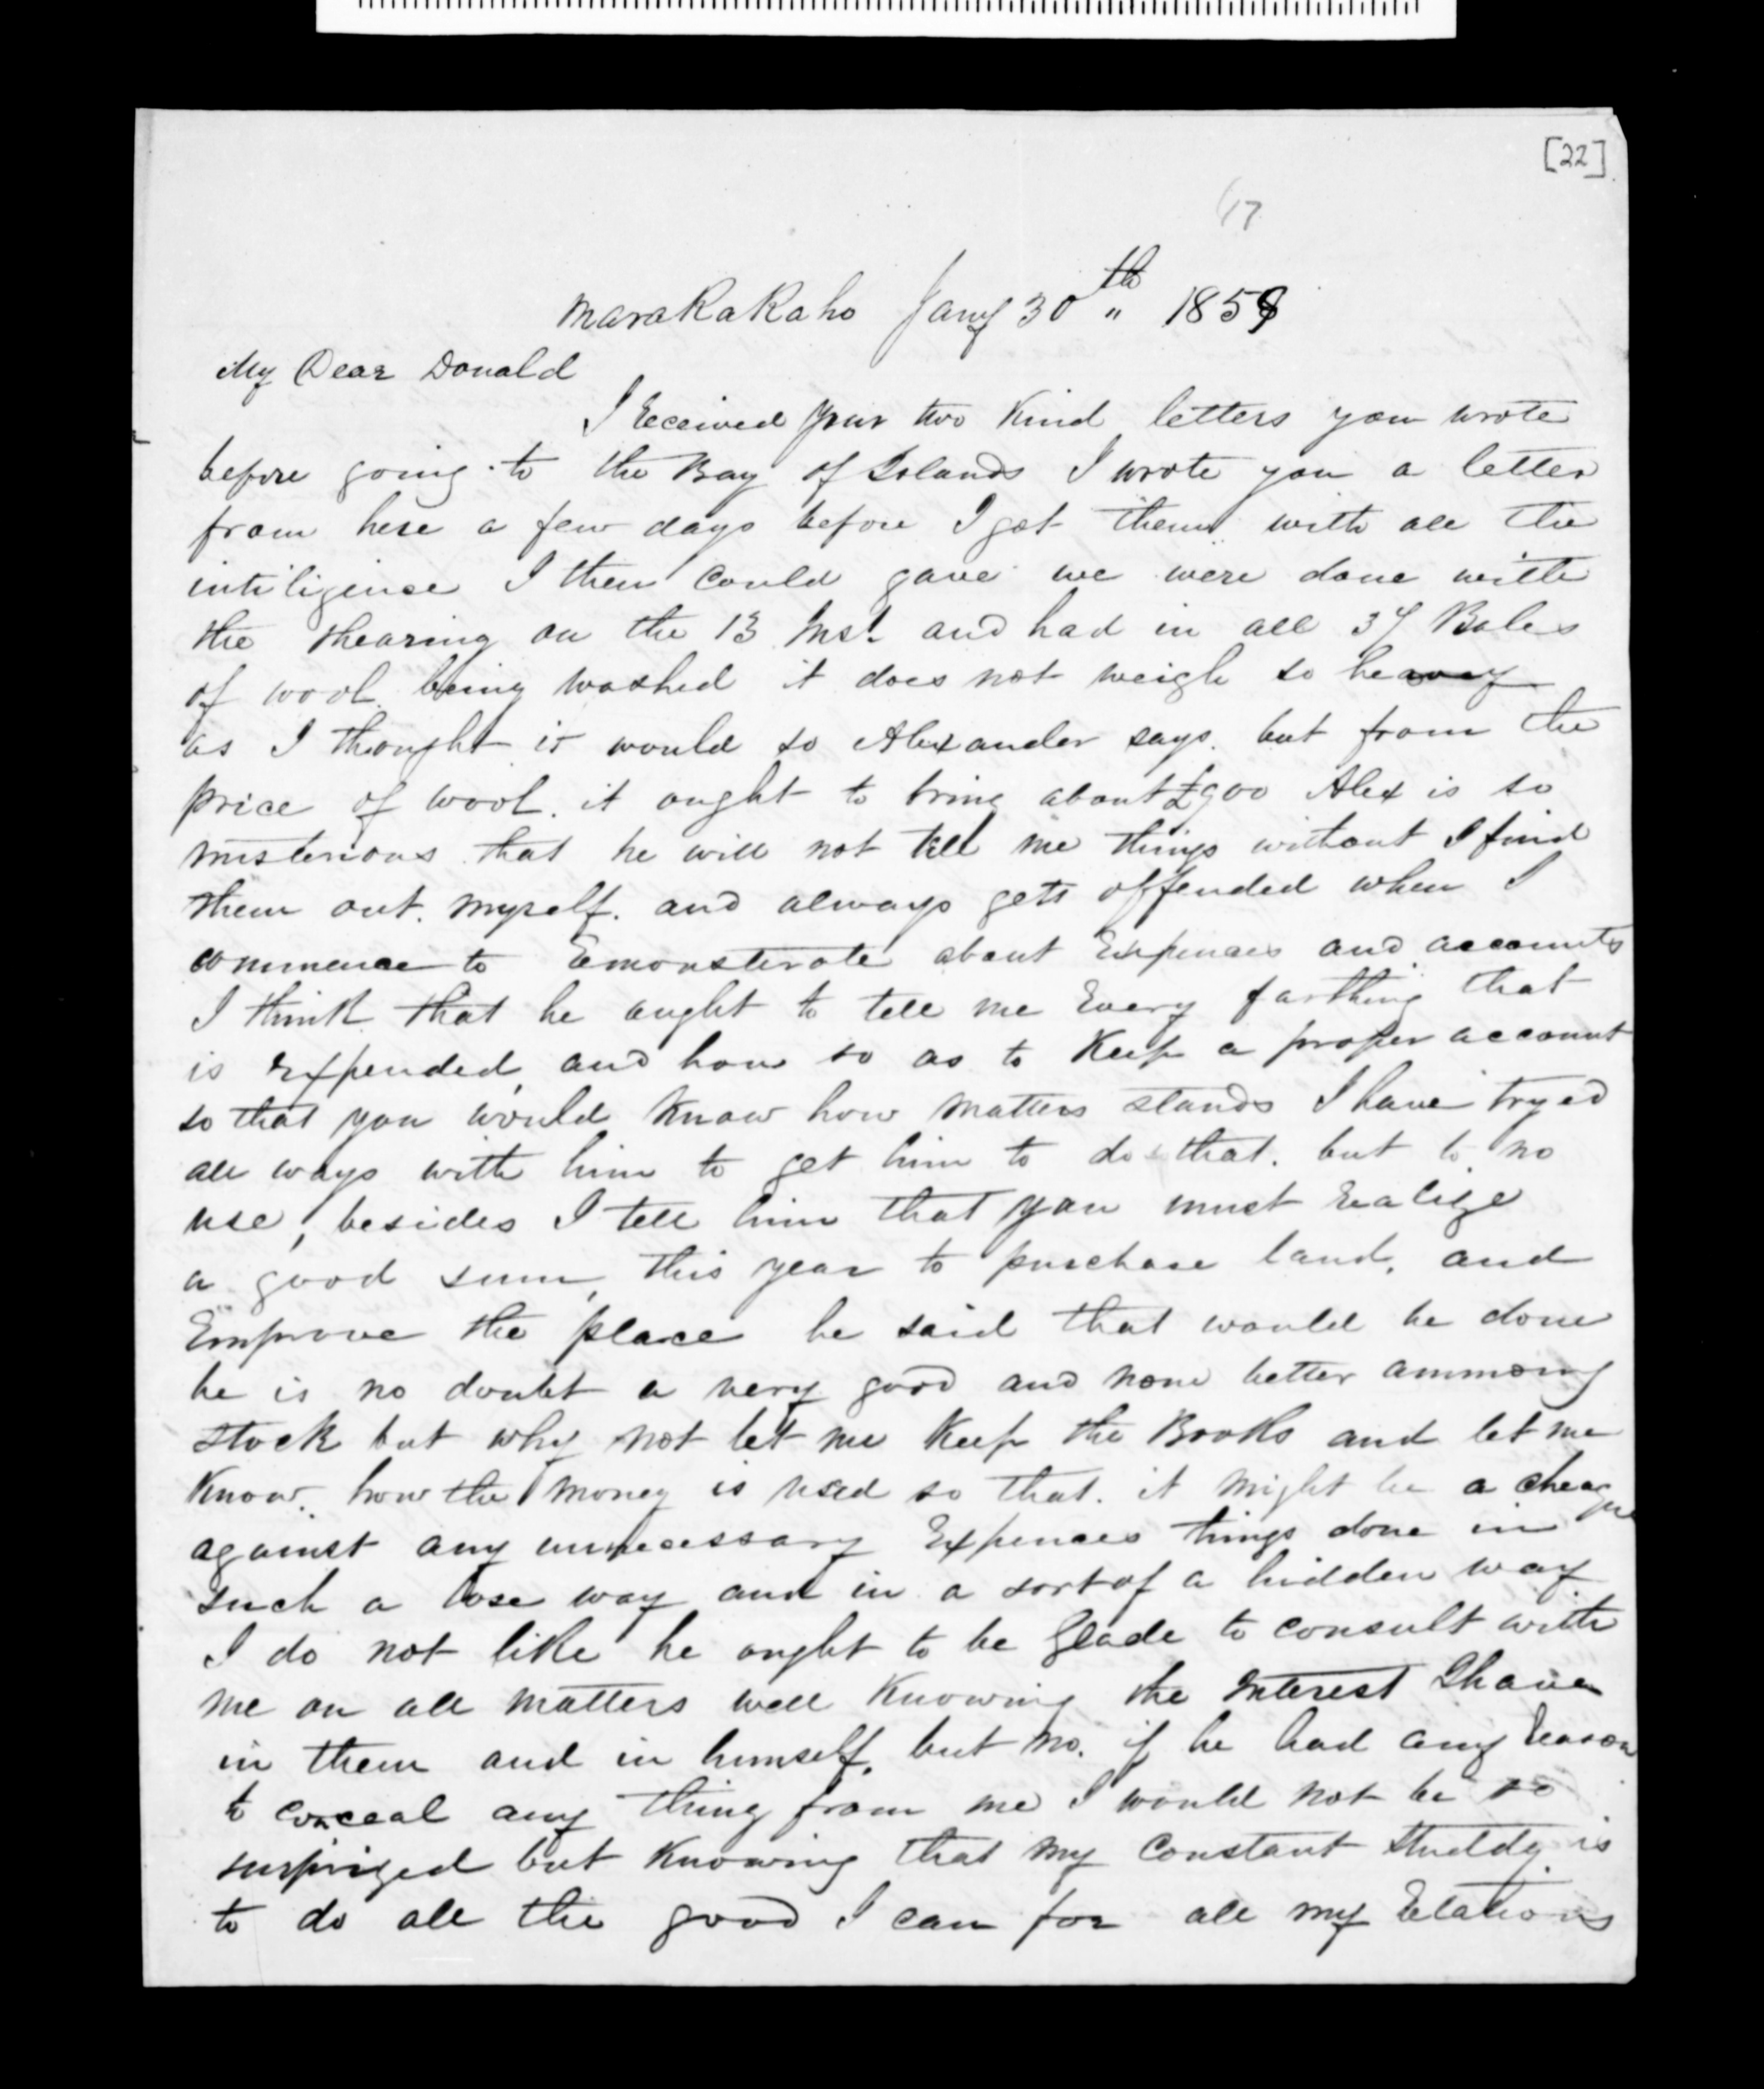 [22]
67
Marakakaho Jany 30th " 1858
My Dear Donald
I Received your two Kind letters you wrote
before going to the Bay of Islands I wrote you a letter
from here a few days before I got them with all the
intiligense I then could gave we were done with
the shearing on the 13 Inst. and had in all 37 Bales
of wool being washed it does not weigh so heavey
as I thought it would so Alexander says. but from the
price of wool. it ought to bring about £900 Alex is so
misterious that he will not tell me things without I find
them out. myself. and always gets offended when I
commence to Remonsterate about Expences and accounts
I think that he aught to tell me Every farthing that
is Expended, and how so as to Keep a proper account
so that you would Know how matters stands I have tryed
all ways with him to get him to do that. but to no
use, besides I tell him that you must Realize
a good sum, this year to purchase land, and
Emprove the place he said that would be done
he is no doubt a very good and none better ammong
stock but why not let me Keep the Books and let me
Know. how the money is used so that. it might be a cheaque
against any unnecessary Expences things done in
such a lose way and in a sort of a hidden way
I do not like he ought to be Glade to consult with
me on all matters well Knowing the Interest I have
in them and in himself. but no. if he had any Reason
to conceal any thing from me I would not be so
surprized but Knowing that my Constant studdy is
to do all the good I can for all my Relations